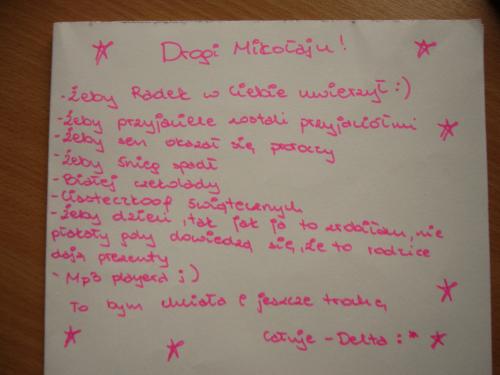 Drogi Mikołaju!
- Żeby Radek w Ciebie uwierzył :)
- Żeby przyjaciele zostali przyjaciółmi
- Żeby sen okazał się proroczy
- Żeby śnieg spadł
- Białej czekolady
- Ciasteczkoof świątecznych
- Żeby dzieci, tak jak ja to zrobiłam, nie
płakały gdy dowiedzą się, że to rodzice
dają prezenty
- Mp3 playera ;)
To bym chciała i jeszcze trochę
Całuje - Delta :*